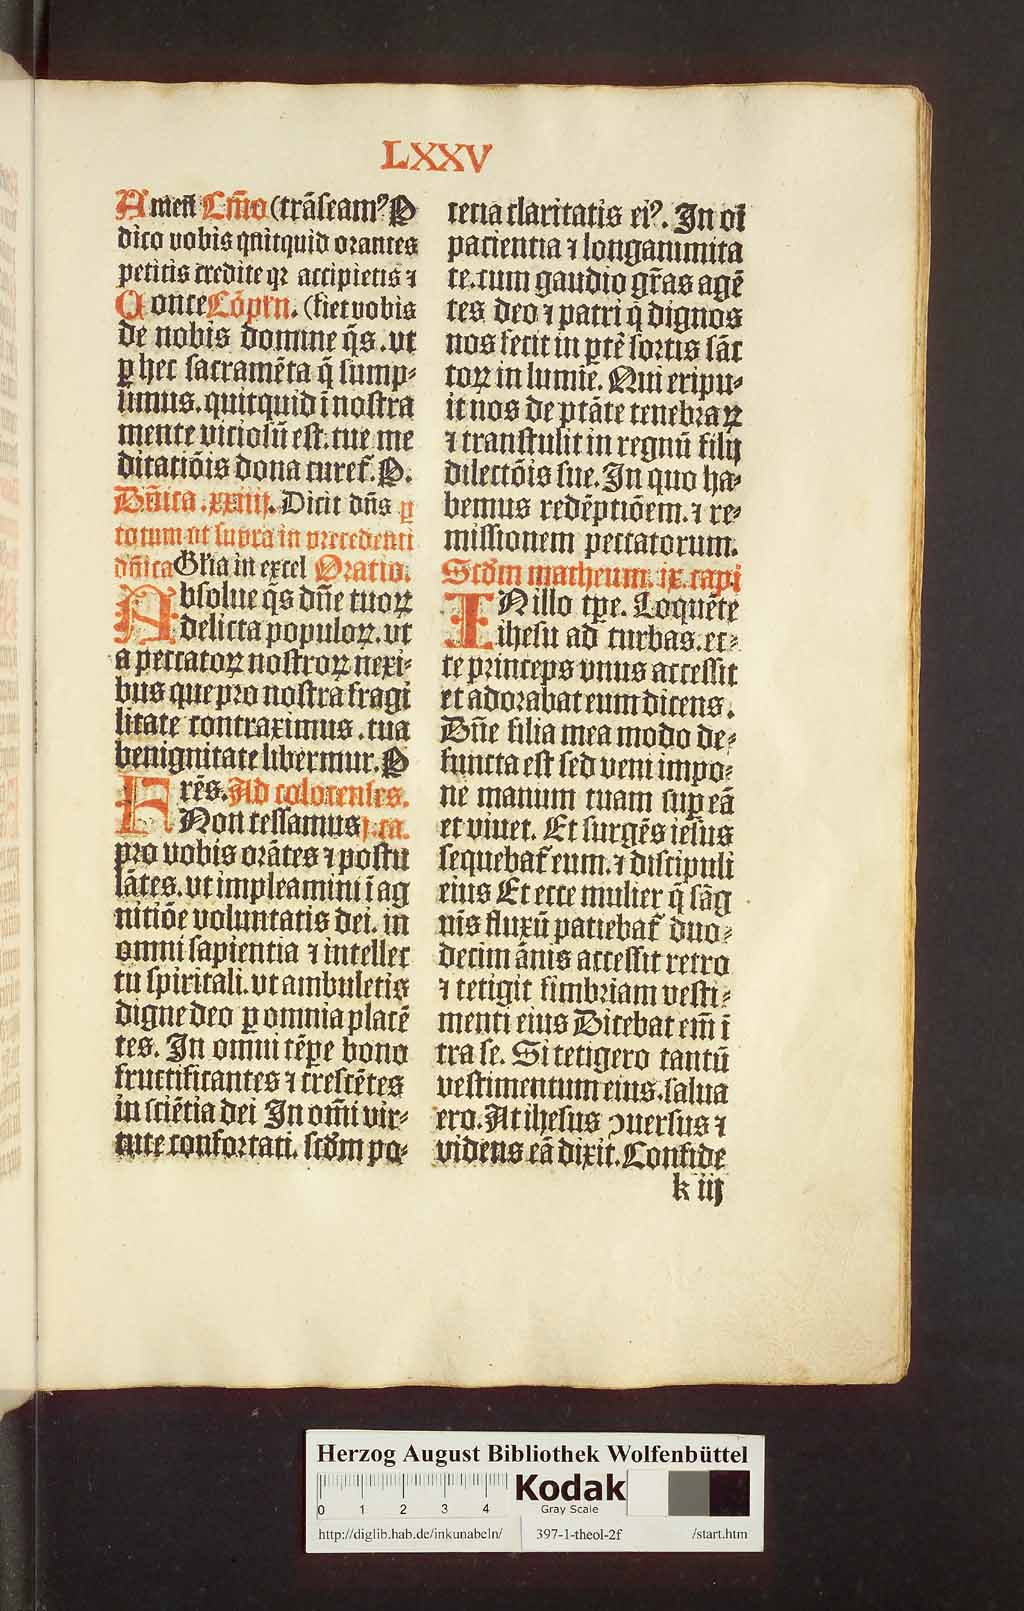 LXXV
Amen̄ Cm̄io (trāſeam⁹ P
dico vobis quitquid orantes
petitis credite qꝛ accipietis ⁊
Conce Cōpen. (fiet vobis
de nobis domine q̄s. vt
ꝑ hec ſacramēta q̄ ſump⸗
ſimus. quitquid ī noſtra
mente vicioſū eſt. tue me
ditatiōis dona curēt. P.
Dn̄ica .xxiiij. Dicit dn̄s ꝑ
totum vt ſupra in precedenti
dn̄ica Gl'ia in excel Oratio.
Abſolue q̄s dn̄e tuoꝝ
delicta populoꝝ. vt
a peccatoꝝ noſtroꝝ nexi⸗
bus que pro noſtra fragi
litate contraximus. tua
benignitate libermur. P
Frēs. Ad colocenſes.
Non ceſſamus j. ca.
pro vobis orātes ⁊ poſtu
lātes. vt impleamini ī ag
nitiōe voluntatis dei. in
omni ſapientia ⁊ intellec
tu ſpiritali. vt ambuletis
digne deo ꝑ omnia placē
tes. In omni tēpe bono
fructificantes ⁊ creſcētes
in ſciētia dei In om̄i vir⸗
tute confortati. ſcd̄m po⸗
tencia claritatis ei⁹. In oī
pacientia ⁊ longanimita
te. cum gaudio gr̄as agē
tes deo ⁊ patri q̄ dignos
nos fecit in ꝑtē ſortis ſāc
toꝝ in lumīe. Qui eripu⸗
it nos de ptāte tenebraꝝ
⁊ tranſtulit in regnū filij
dilectōis ſue. In quo ha⸗
bemus redēptiōem. ⁊ re⸗
miſſionem peccatorum.
Scd̄m matheum. ix. capi
IN illo tꝑe. Loquēte
iheſu ad turbas. ec⸗
ce princeps vnus acceſſit
et adorabat eum dicens.
Dn̄e filia mea modo de⸗
functa eſt ſed veni impo⸗
ne manum tuam ſup eā
et viuet. Et ſurgēs ieſus
ſequebat̄ eum. ⁊ diſcipuli
eius Et ecce mulier q̄ ſāg
nīs fluxū patiebat̄ duo⸗
decim ānis acceſſit retro
⁊ tetigit fimbriam veſti⸗
menti eius Dicebat em̄ ī
tra ſe. Si tetigero tantū
veſtimentum eius. ſalua
ero. At iheſus ↄuerſus ⁊
videns eā dixit. Confide
k iij
Herzog August Bibliothek Wolfenbüttel
0 1 2 3 4
Kodak
Gray Scale
http://diglib.hab.de/inkunabeln/ 397-1-theol-2f /start.htm